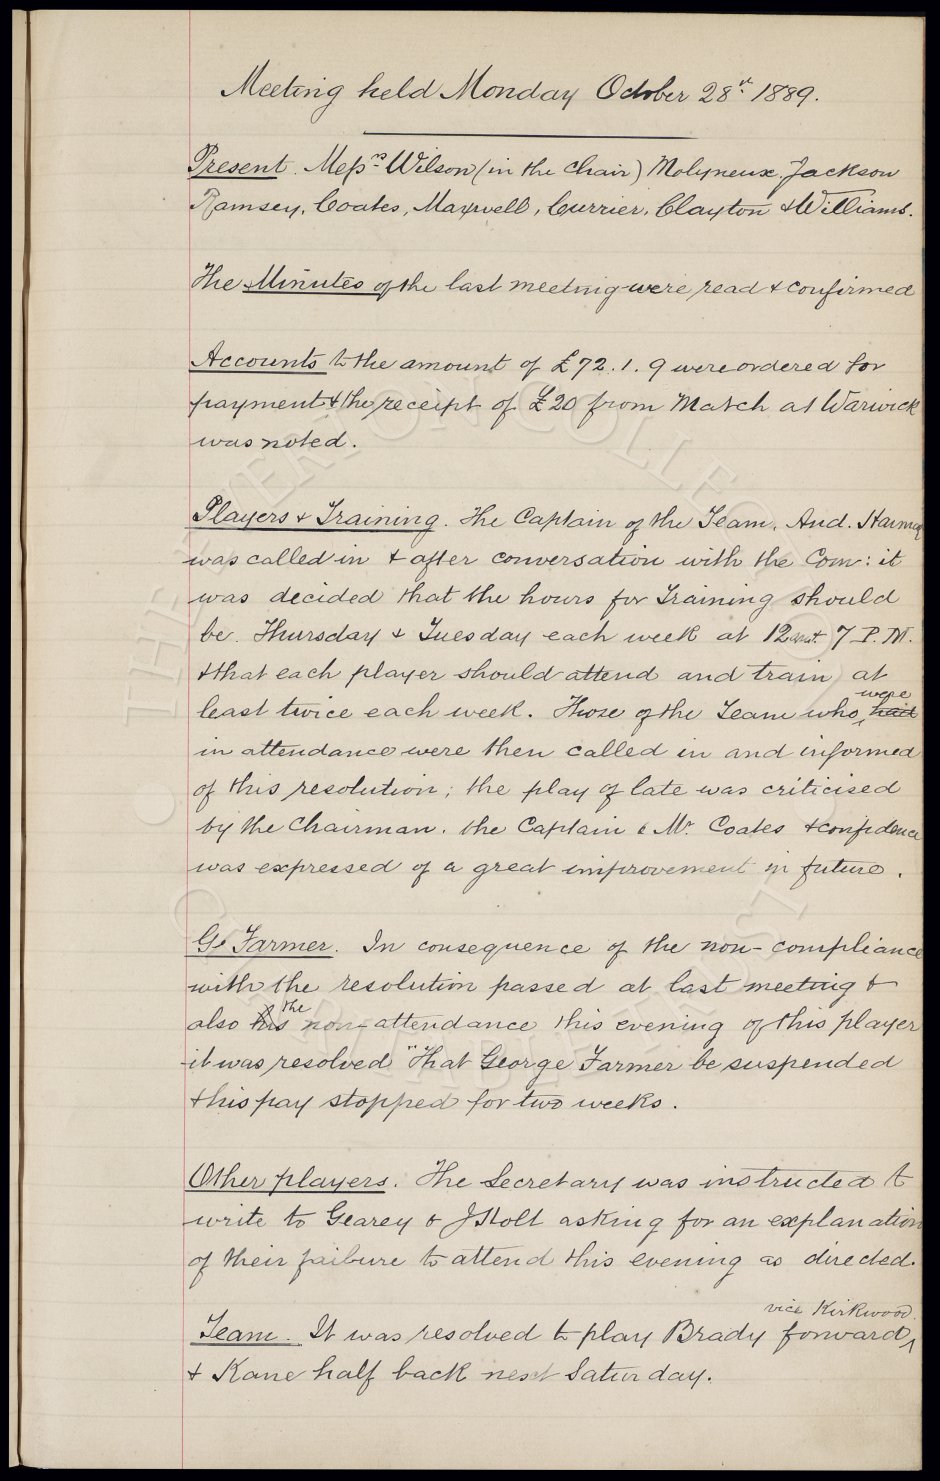 Meeting held Monday October 28th 1889.
Present. Messrs Wilson (in the Chair) Molyneux. Jackson
Ramsey, Coates, Maxwell, Currier, Clayton & Williams.
The Minutes of the last meeting were read & confirmed
Accounts to the amount of £72.1.9 were ordered for
payment & the receipt of £20 from Match at Warwick
was noted.
Players & Training. The Captain of the Team, And. Hannay
was called in & after conversation with the Com: it
was decided that the hours for Training should
be. Thursday & Tuesday each week at 12 and 7 P.M.
& that each player should attend and train at
least twice each week. Those of the Team who were had
in attendance were then called in and informed
of this resolution; the play of late was criticised
by the Chairman. the Captain & Mr. Coates & confidence
was expressed of a great improvement in future.
Ge Farmer. In consequence of the non-compliance
with the resolution passed at last meeting &
also his the non-attendance this evening of this player
it was resolved "That George Farmer be suspended
& his pay stopped for two weeks.
Other players. The Secretary was instructed to
write to Gearey & J Holt asking for an explanation
of their failure to attend this evening as directed.
Team. It was resolved to play Brady forward vice Kirkwood.
& Kane half back next Saturday.
© THE EVERTON COLLECTION
CHARITABLE TRUST